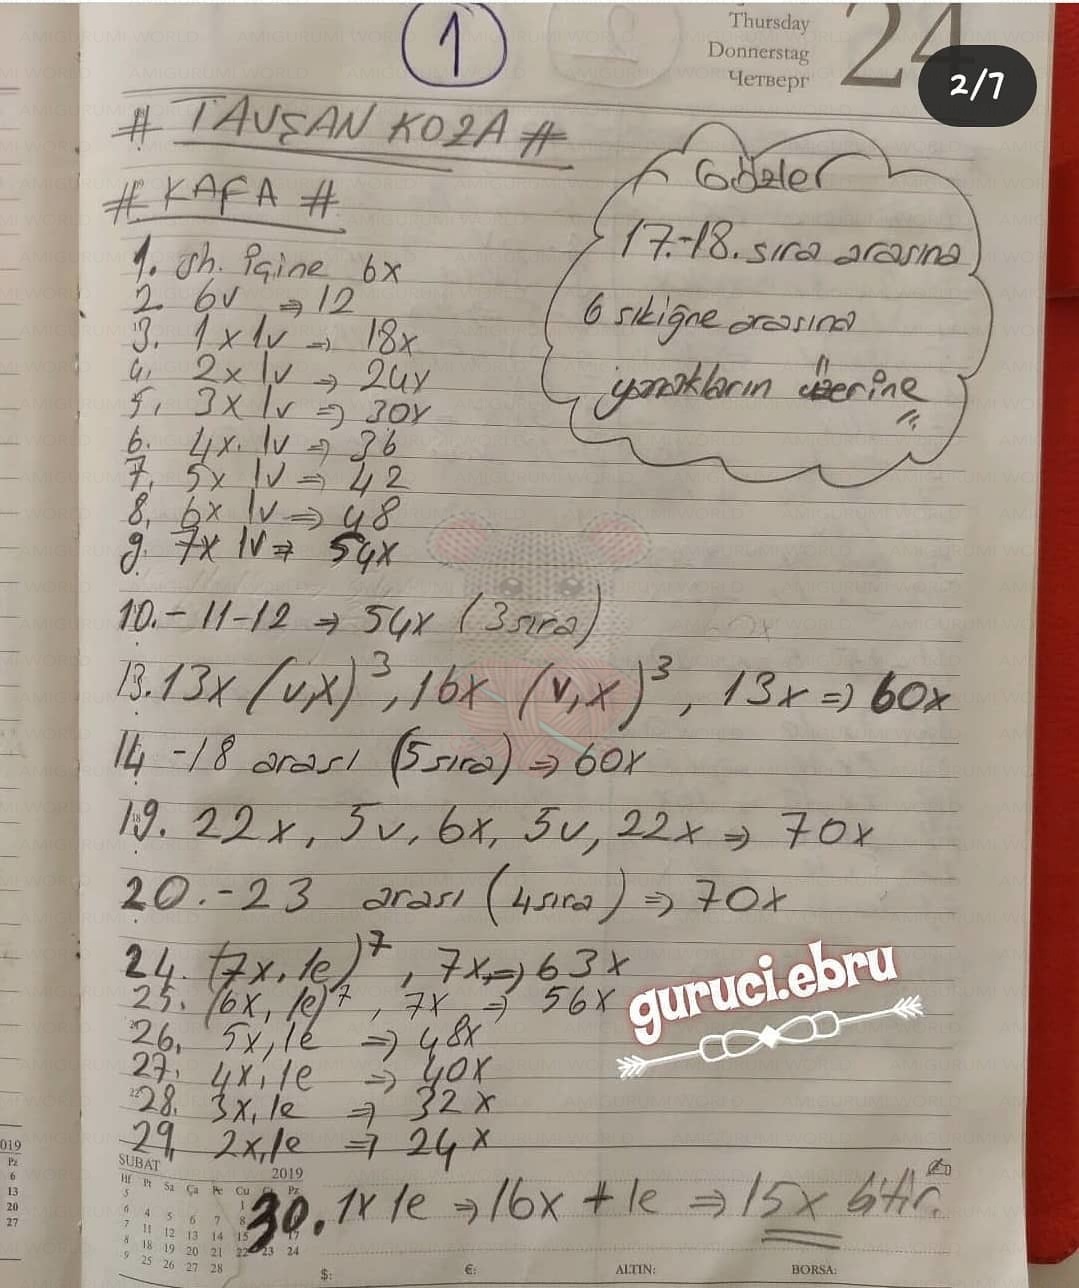 1
Thursday
Donnerstag
Четверг
24
2/7
# TAVŞAN KOZA #
# KAFA #
1. sh. içine 6x
2. 6v ⇒ 12
3. 1x 1v ⇒ 18x
4. 2x 1v ⇒ 24x
5. 3x 1v ⇒ 30x
6. 4x. 1v ⇒ 36
7. 5x 1v ⇒ 42
8. 6x 1v ⇒ 48
9. 7x 1v ⇒ 54x
10.-11-12 ⇒ 54x (3 sıra)
13. 13x (v,x)³, 16x (v,x)³, 13x ⇒ 60x
14-18 arası (5 sıra) ⇒ 60x
19. 22x, 5v, 6x, 5v, 22x ⇒ 70x
20.-23 arası (4 sıra) ⇒ 70x
24. (7x, 1e)⁷, 7x ⇒ 63x
25. (6x, 1e)⁷, 7x ⇒ 56x
26. 5x, 1e ⇒ 48x
27. 4x, 1e ⇒ 40x
28. 3x, 1e ⇒ 32x
29. 2x, 1e ⇒ 24x
30. 1x 1e ⇒ 16x + 1e ⇒ 15x bitir.
Gözler
17.-18. sıra arasına
6 sıkiğne arasına
yanakların üzerine
guruci.ebru
ŞUBAT 2019
Pt Sa Ça Pe Cu
4 5 6 7 8
11 12 13 14 15 17
18 19 20 21 22 23 24
25 26 27 28
$: €: ALTIN: BORSA:
019
Pz
6
13
20
27
AMIGURUMI WORLD